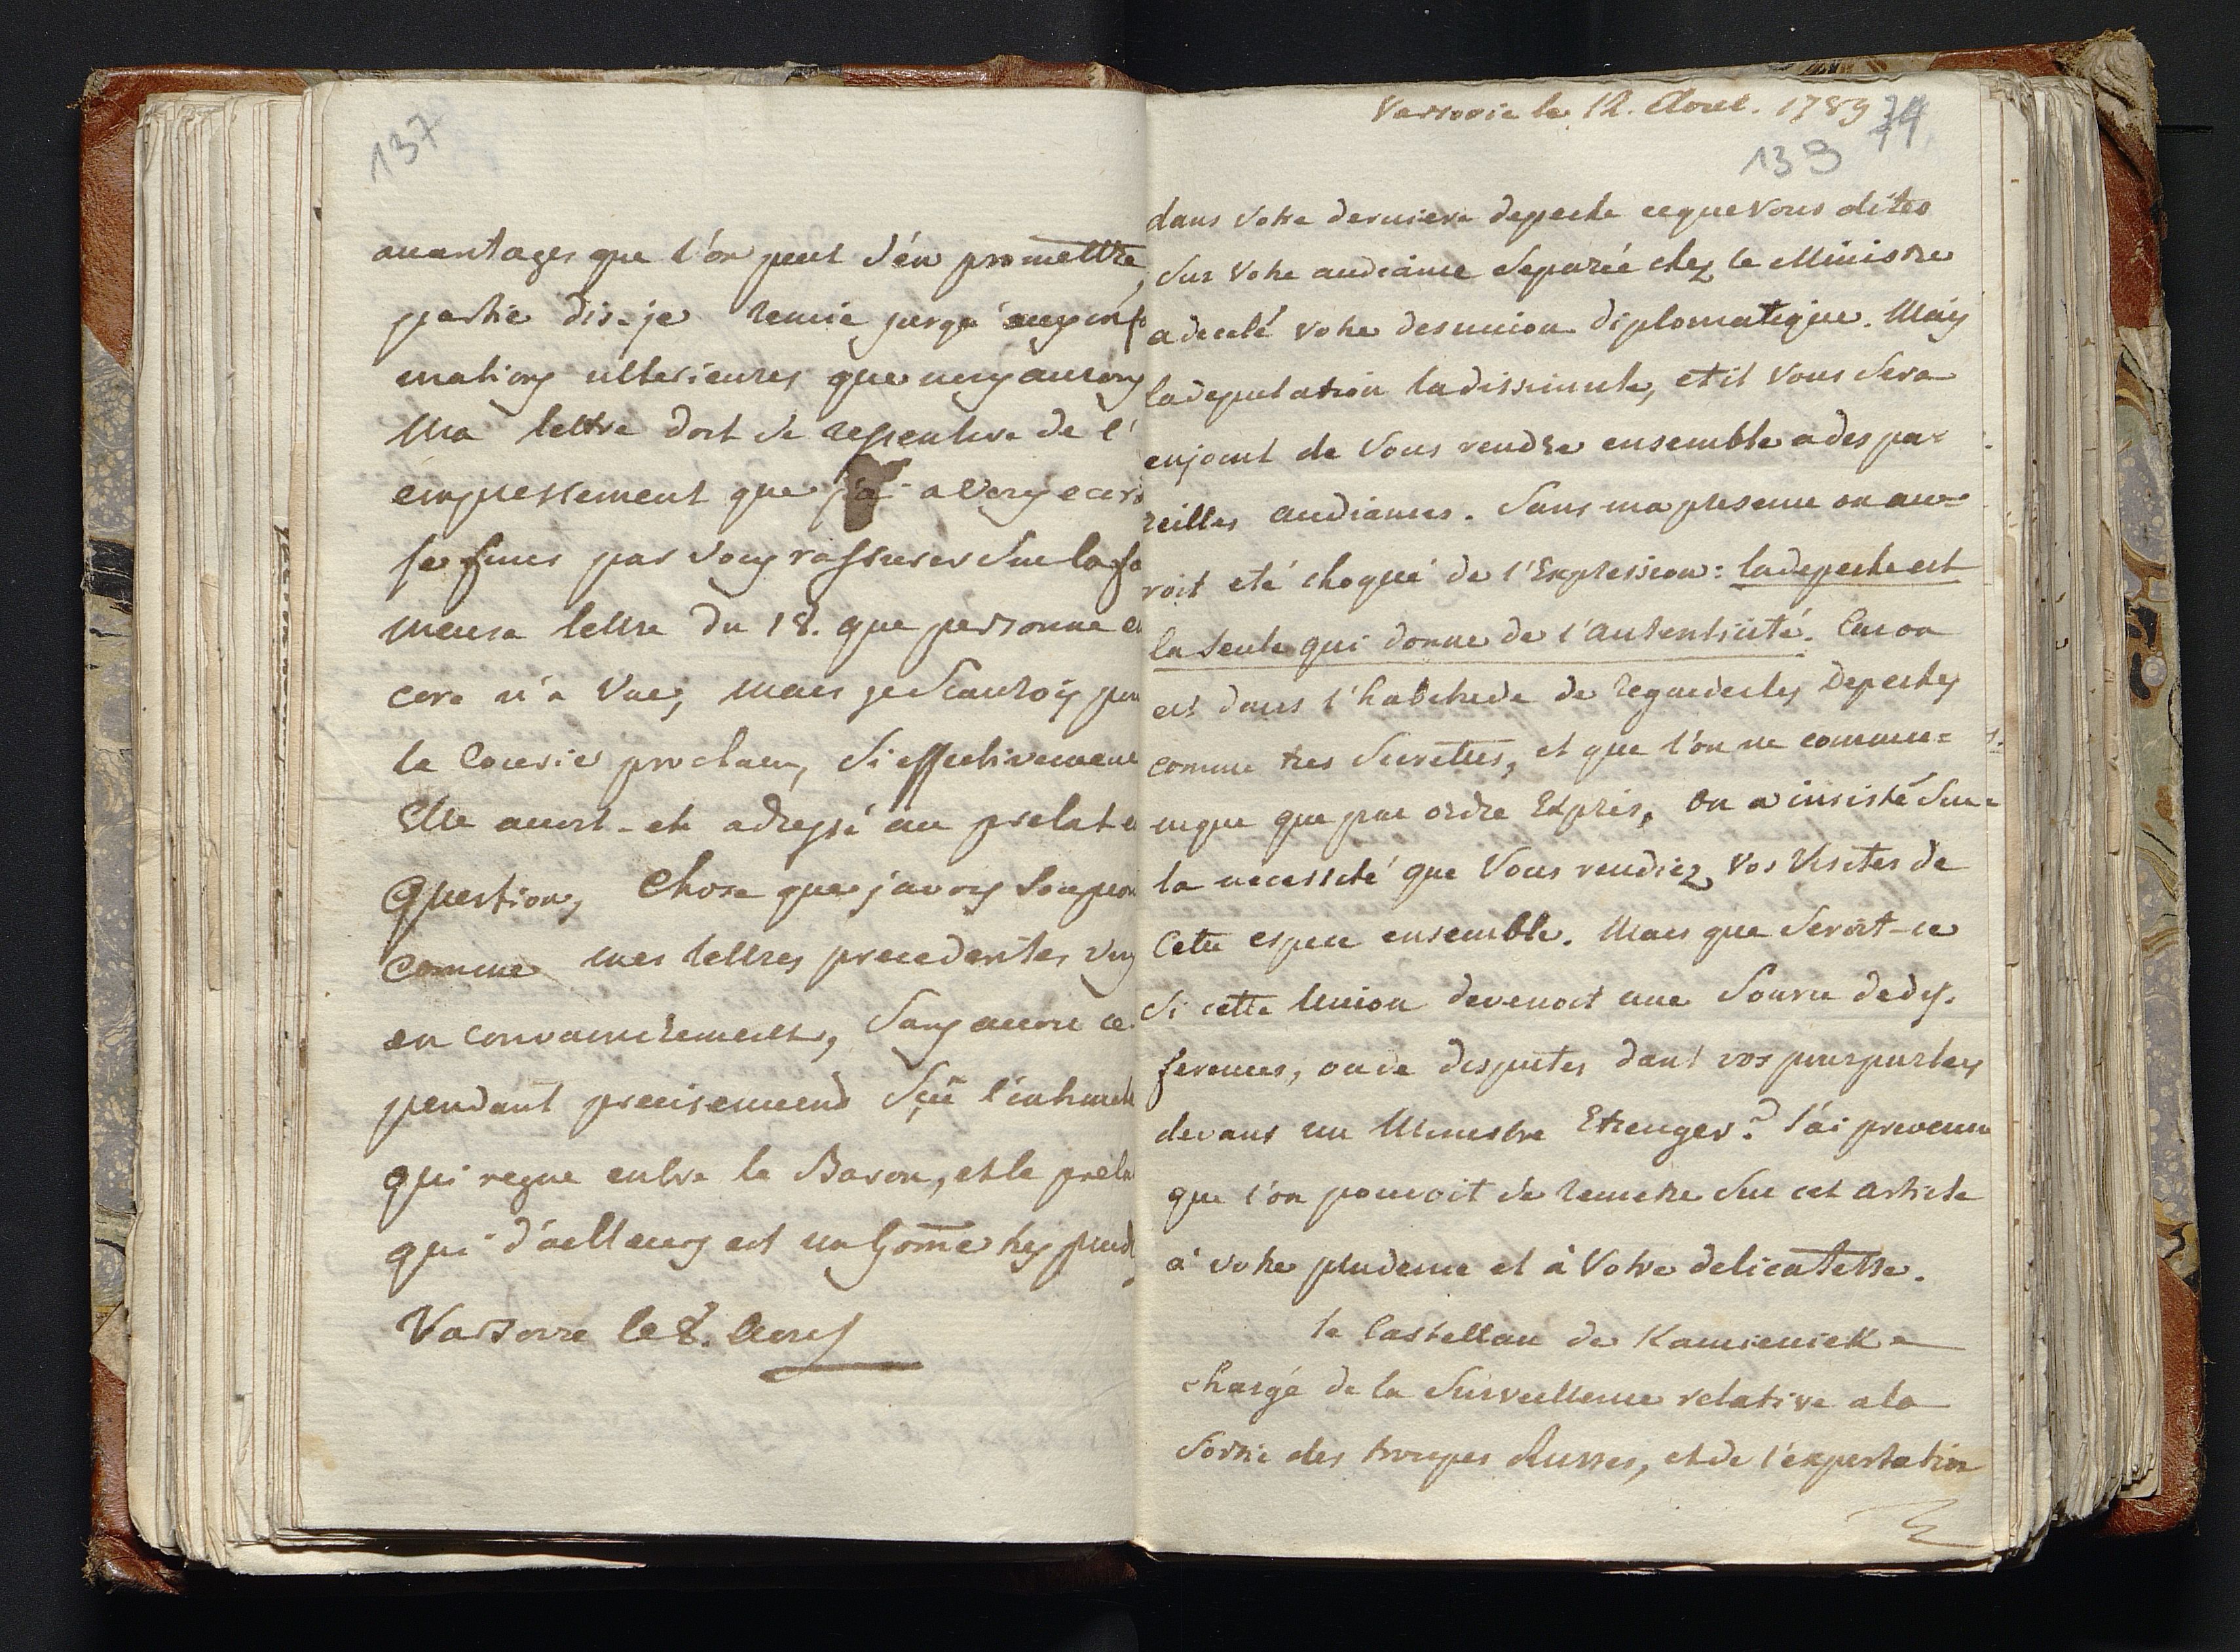 137
avantages que l'on peut s'en promettre,
partie dis-je remise jusqu'aux inf
mations ulterieures que nous aurons
Ma lettre doit se ressentire de l'
empressement que j'ai a Vous ecri
je finis par vous rassurer sur la fa
meuse lettre du 18. que personne en
core n'a Vue, mais je Scaurois par
le Courier prochain, Si effectivement
Elle avoit-ete adressé au prelat en
Question, Chose que j'avois Soupçon
Comme mes lettres precedentes vous
en convaincrement, Sans avoir ce
pendant precisement Sçu l'intimité
qui regne entre le Baron, et le prela
qui d'ailleurs est un home tres prud
Varsovie le 8. Aout
Varsovie le 12. Aout. 1789 74
139
dans votre derniere depeche ce que Vous dites
Sur Votre audiance Separée chez le Ministre
a decelé votre desunion diplomatique. Mais
la deputation la dissimule, et il Vous Sera
enjoint de Vous rendre ensemble a des pa=
reilles audiances. Sans ma presence on au=
roit eté choqué de l'Expression: la depeche est
la seule qui donne de l'autenticité. Car on
est dans l'habitude de regarder les Depeches
comme tres Secretes, et que l'on ne commu=
nique que par ordre Exprès, On a insisté Sur
la necessité que Vous rendiez Vos Visites de
Cette espece ensemble. Mais que Seroit-ce
Si cette Union devenoit une Source de dif.
ferences, ou de disputes dans vos pourparlers
devant un Ministre Etranger? J'ai prevenu
que l'on pouvoit se remetre Sur cet article
à votre prudence et à Votre delicatesse.
le Castellan de Kamieniek
chargé de la Surveillence relative a la
Sortie des troupes Russes, et de l'exportation